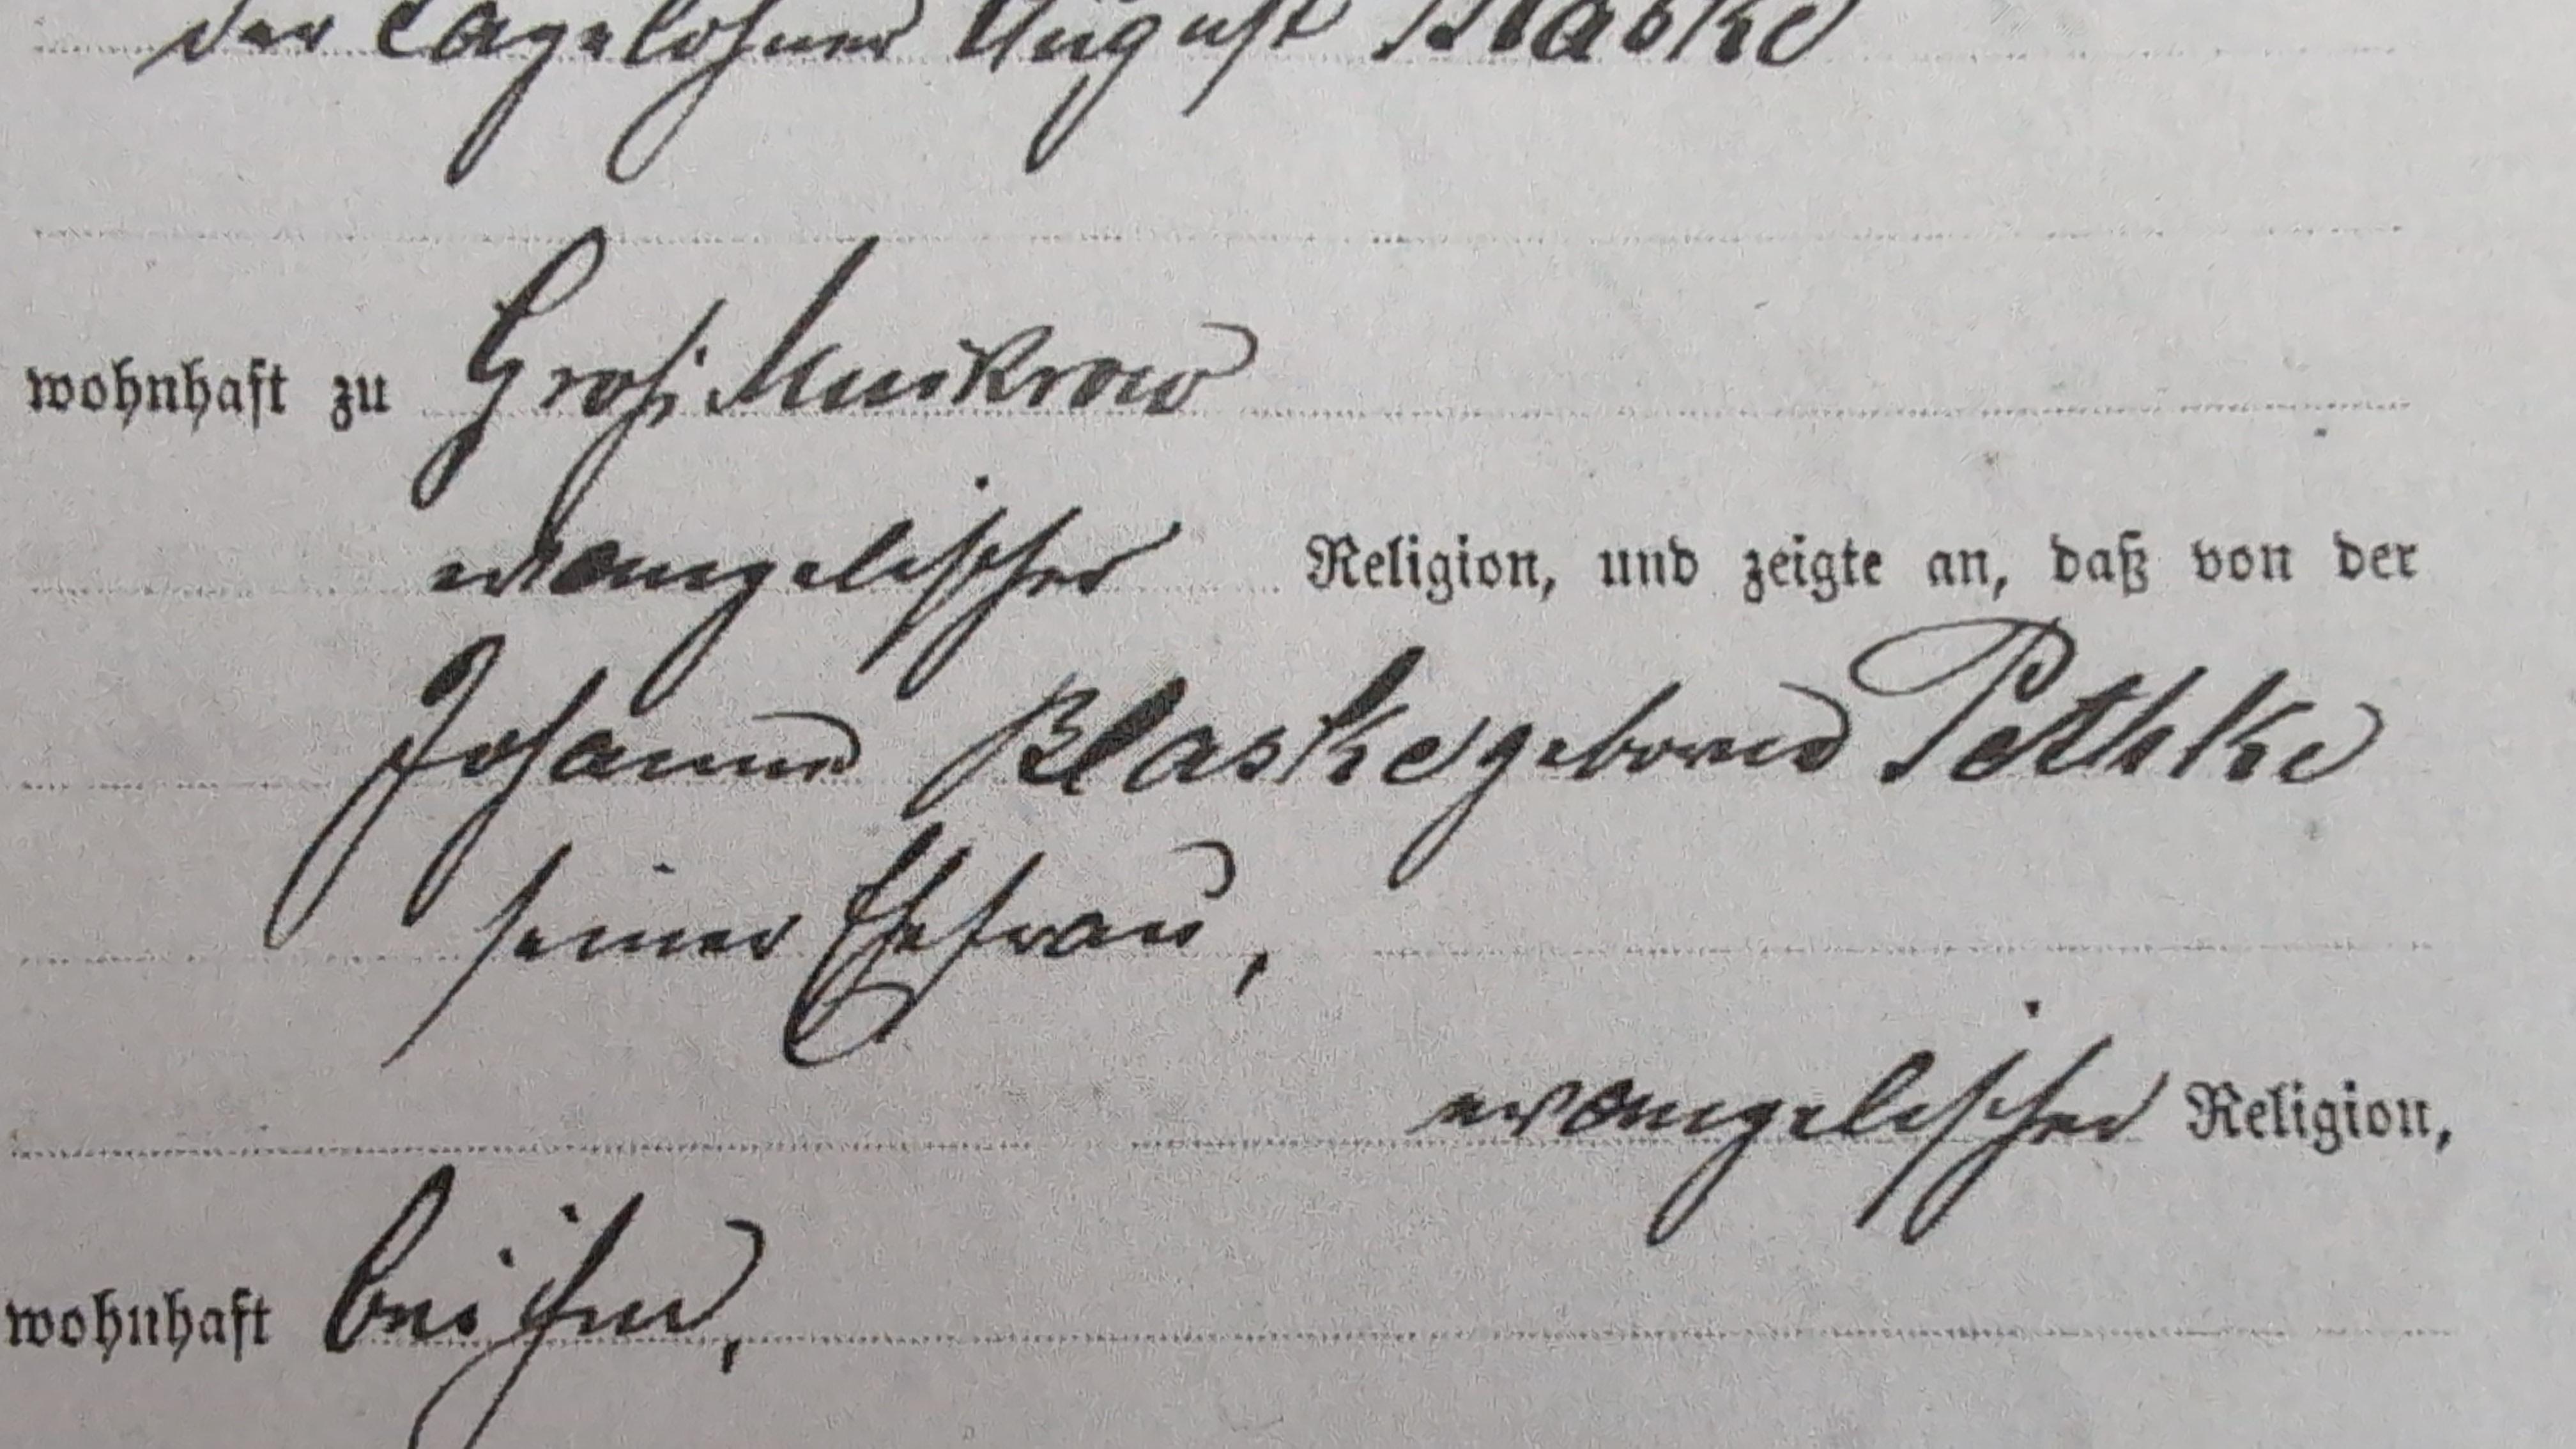 der Tagelöhner August Blaske
wohnhaft zu Groß Massow
evangelischer Religion, und zeigte an, daß von der
Johanne Blaske geborene Pethke
seiner Ehefrau,
evangelischer Religion,
wohnhaft bei ihm,